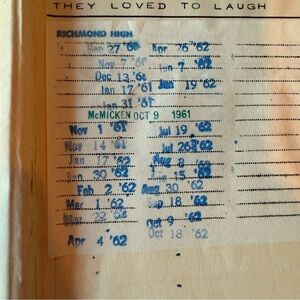 THEY LOVED TO LAUGH
RICHMOND HIGH
Sep 27 '60 Apr 26 '62
Nov 7 '60 Jun 7 '62
Dec 13 '60 Jun 19 '62
Jan 17 '61
Jan 31 '61
McMICKEN OCT 9 1961
Nov 1 '61 Jul 19 '62
Nov 14 '61 Jul 26 '62
Jan 17 '62 Aug 8 '62
Jan 30 '62 15 '62
Feb 2 '62 Aug 30 '62
Mar 1 '62 Sep 18 '62
Mar 22 '62 Oct 9 '62
Apr 4 '62 Oct 18 '62